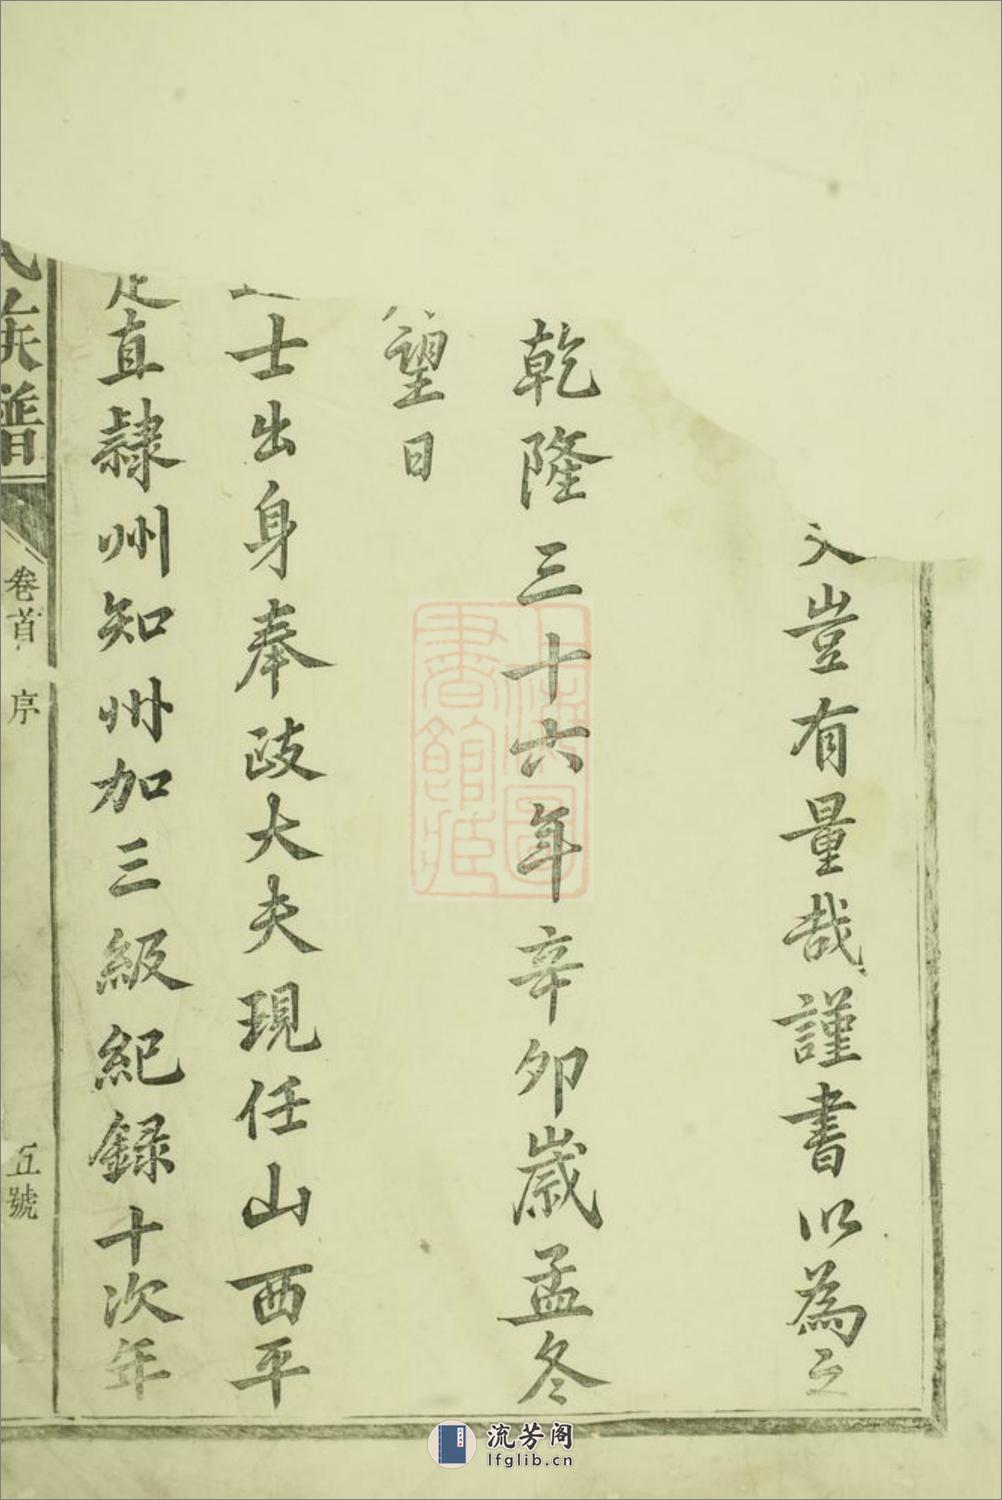 豈有量哉謹書以為之
乾隆三十六年辛卯歲孟冬
望日
士出身奉政大夫現任山西平
定直隸州知州加三級紀錄十次年
氏族譜
卷首 序
五號
上海圖書館藏
流芳阁
lfglib.cn